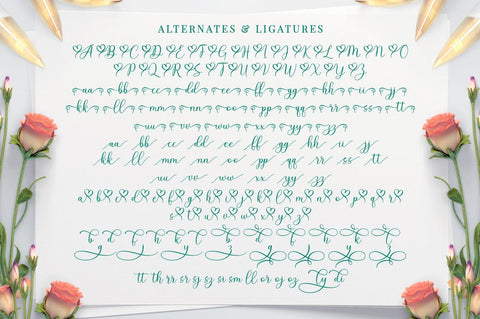 ALTERNATES & LIGATURES
A B C D E F G H I J K L M N O
P Q R S T U V W X Y Z
aa bb cc dd ee ff gg hh ii jj
kk ll mm nn oo pp qq rr ss tt
uu vv ww xx yy zz
aa bb cc dd ee ff gg hh ii jj
kk ll mm nn oo pp qq rr ss tt
uu vv ww xx yy zz
a b c d e f g h i j k l m n o p q r
s t u v w x y z
b d f h k l b d f h k l
g j y g j y
tt th rr sr sj sz si sm ll or oj oz Ty di